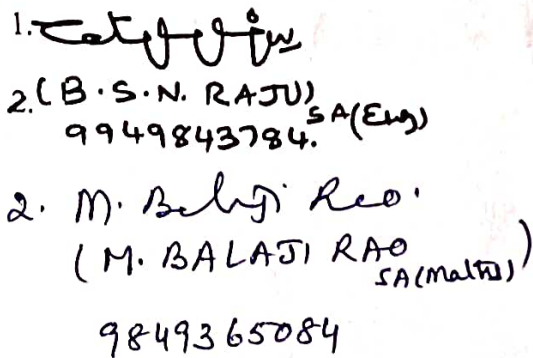 1.
2. (B.S.N. RAJU)
SA(Eng)
9949843784.
2. M. Balaji Rao.
(M. BALAJI RAO
SA(Maths))
9849365084